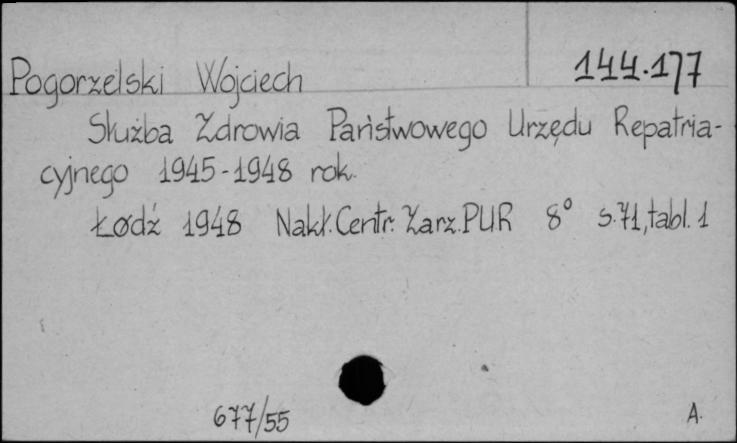 Pogorzelski Wojciech 144.177
Służba Zdrowia Państwowego Urzędu Repatria-
cyjnego 1945-1948 rok.
Łódź 1948 Nakł. Centr. Zarz. PUR 8° s. 71, tabl. 1
677/55 A.